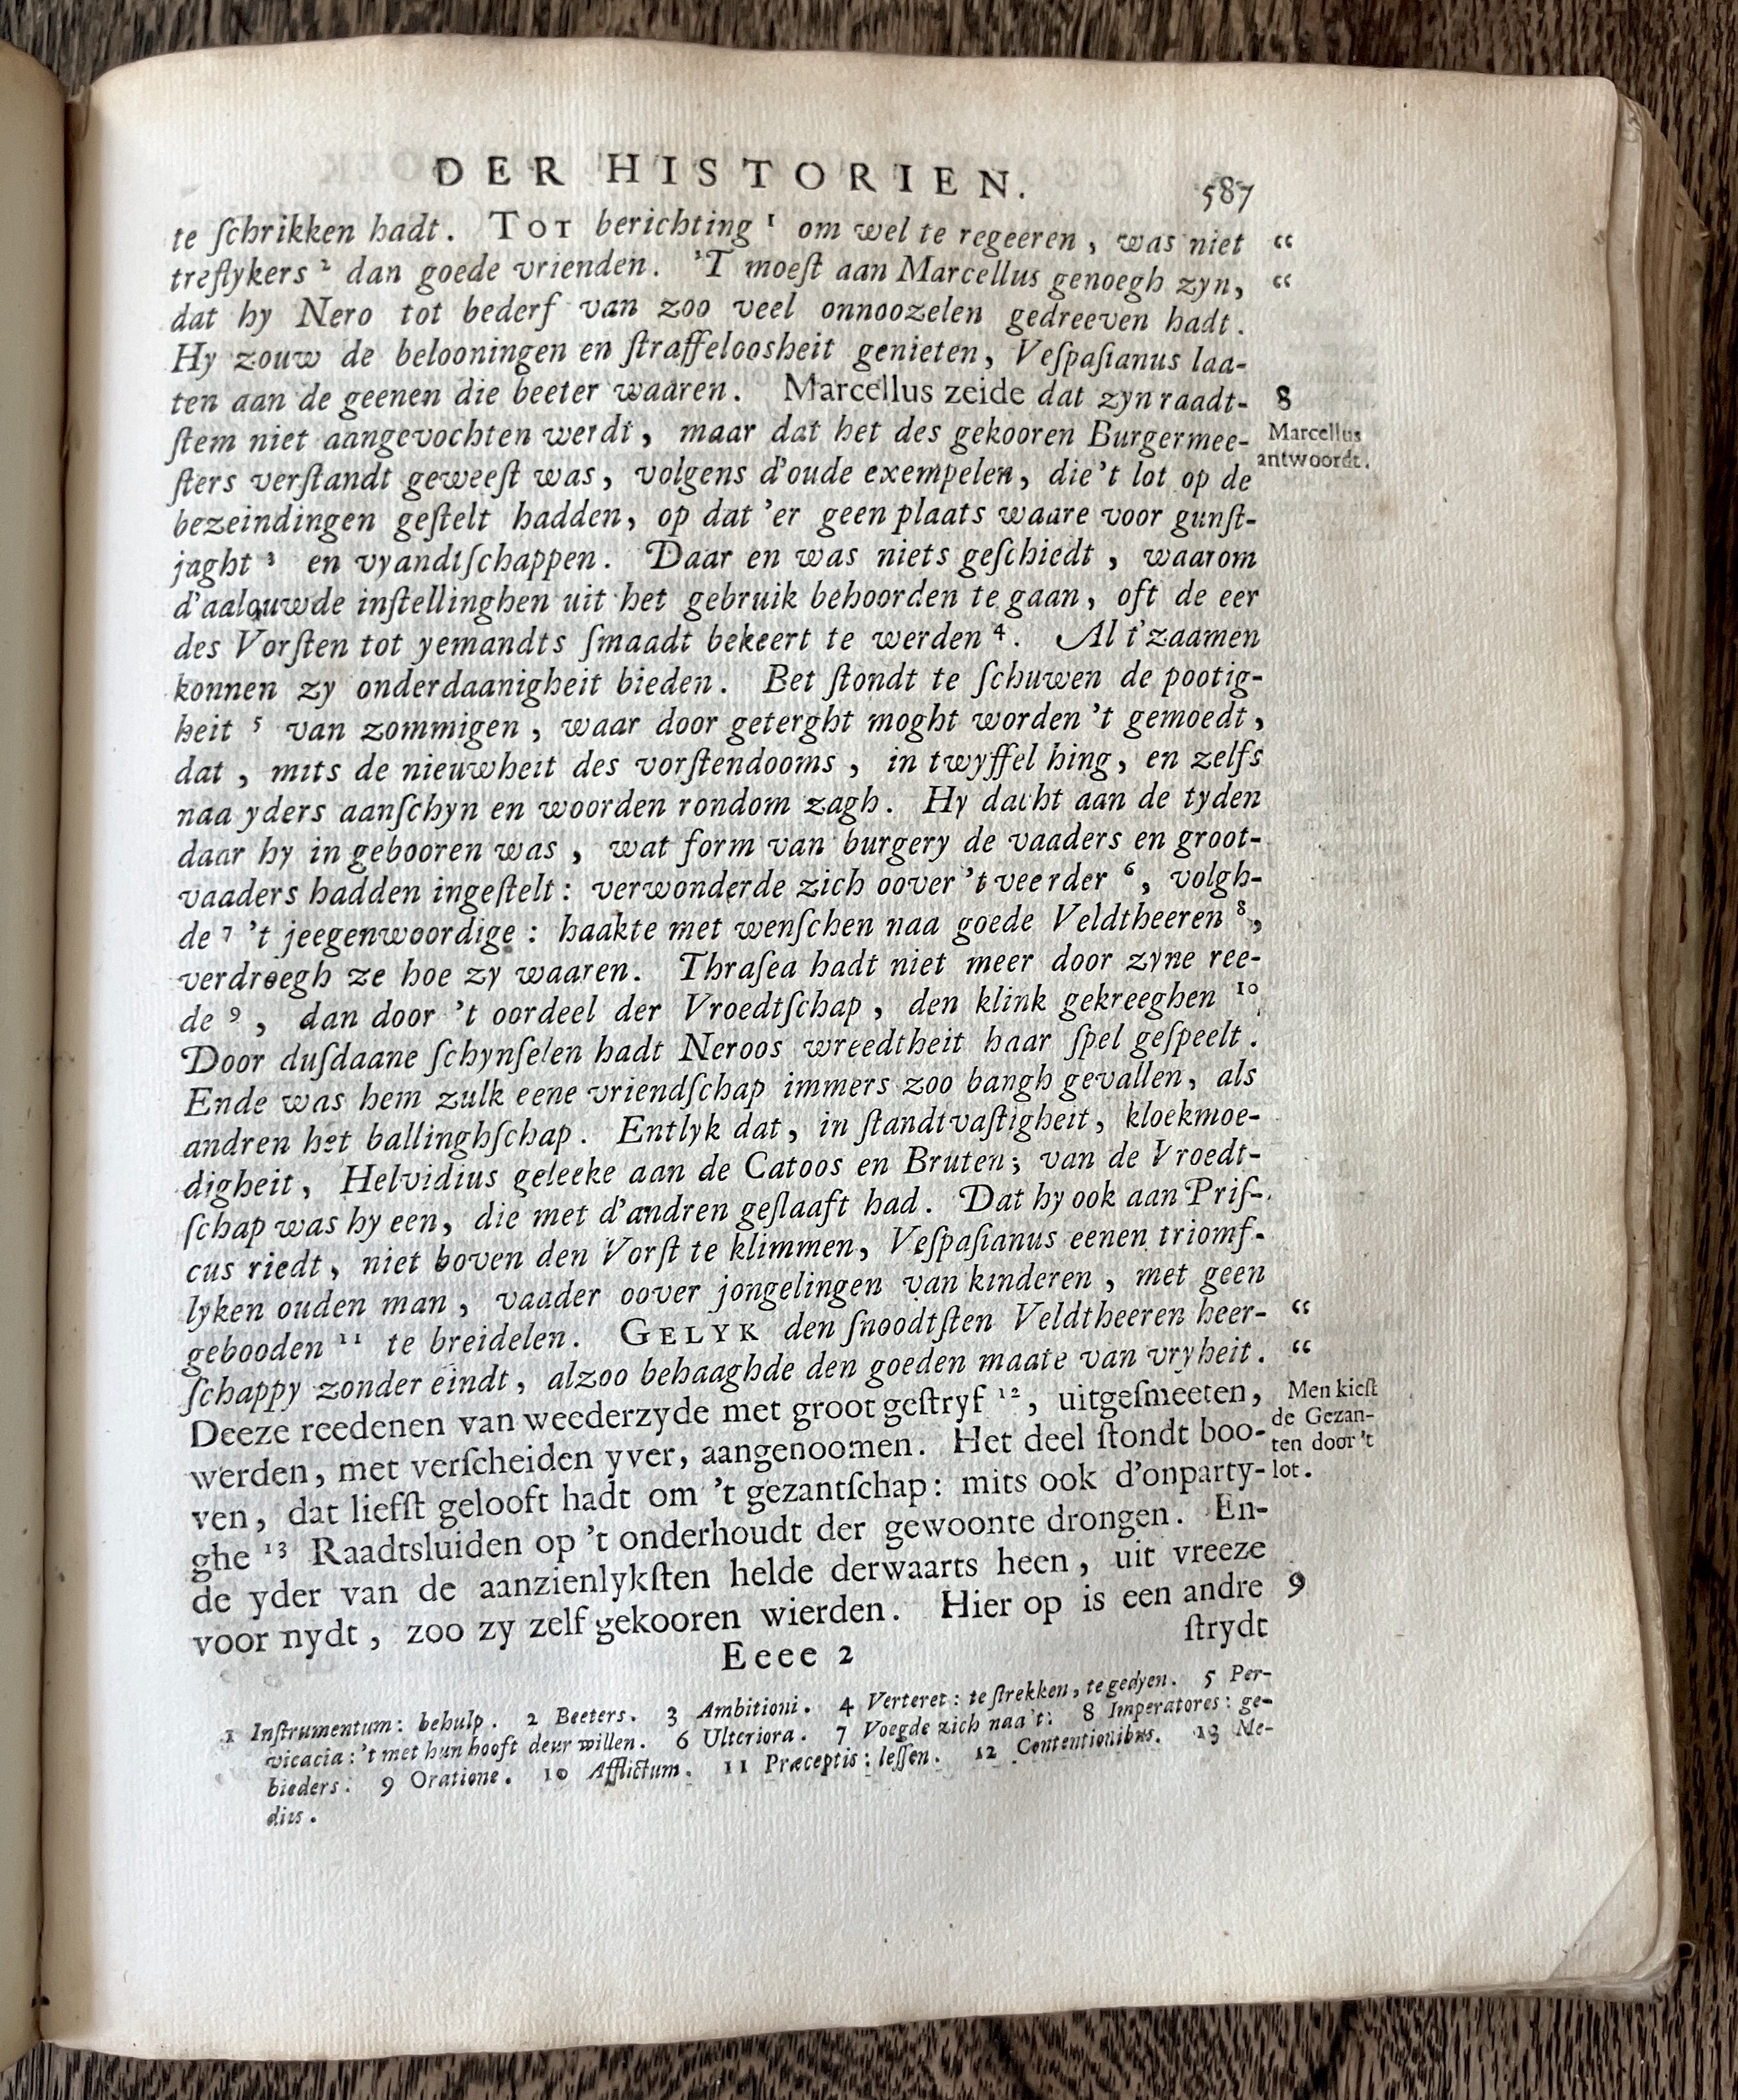 DER HISTORIEN. 587
te ſchrikken hadt. TOT berichting ¹ om wel te regeeren, was niet “
treflykers ² dan goede vrienden. 'T moeſt aan Marcellus genoegh zyn, “
dat hy Nero tot bederf van zoo veel onnoozelen gedreeven hadt.
Hy zouw de belooningen en ſtraffeloosheit genieten, Veſpaſianus laa-
ten aan de geenen die beeter waaren. Marcellus zeide dat zyn raadt- 8
ſtem niet aangevochten werdt, maar dat het des gekooren Burgermee- Marcellus
ſters verſtandt geweeſt was, volgens d'oude exempelen, die 't lot op de antwoordt.
bezeindingen geſtelt hadden, op dat 'er geen plaats waare voor gunſt-
jaght ³ en vyandtſchappen. Daar en was niets geſchiedt, waarom
d'aalouwde inſtellinghen uit het gebruik behoorden te gaan, oft de eer
des Vorſten tot yemandts ſmaadt bekeert te werden ⁴. Al t'zaamen
konnen zy onderdaanigheit bieden. Bet ſtondt te ſchuwen de pootig-
heit ⁵ van zommigen, waar door geterght moght worden 't gemoedt,
dat, mits de nieuwheit des vorſtendooms, in twyffel hing, en zelfs
naa yders aanſchyn en woorden rondom zagh. Hy dacht aan de tyden
daar hy in gebooren was, wat form van burgery de vaaders en groot-
vaaders hadden ingeſtelt: verwonderde zich oover 't veerder ⁶, volgh-
de ⁷ 't jeegenwoordige: haakte met wenſchen naa goede Veldtheeren ⁸,
verdroegh ze hoe zy waaren. Thraſea hadt niet meer door zyne ree-
de ⁹, dan door 't oordeel der Vroedtſchap, den klink gekreeghen ¹⁰.
Door duſdaane ſchynſelen hadt Neroos wreedtheit haar ſpel geſpeelt.
Ende was hem zulk eene vriendſchap immers zoo bangh gevallen, als
andren het ballinghſchap. Entlyk dat, in ſtandtvaſtigheit, kloekmoe-
digheit, Helvidius geleeke aan de Catoos en Bruten; van de Vroedt-
ſchap was hy een, die met d'andren geſlaaft had. Dat hy ook aan Priſ-
cus riedt, niet boven den Vorſt te klimmen, Veſpaſianus eenen triomf-
lyken ouden man, vaader oover jongelingen van kinderen, met geen
gebooden ¹¹ te breidelen. GELYK den ſnoodtſten Veldtheeren heer- “
ſchappy zonder eindt, alzoo behaaghde den goeden maate van vryheit. “
Deeze reedenen van weederzyde met groot geſtryf ¹², uitgeſmeeten, Men kieſt
werden, met verſcheiden yver, aangenoomen. Het deel ſtondt boo- de Gezan-
ten door 't
ven, dat liefſt gelooft hadt om 't gezantſchap: mits ook d'onparty- lot.
ghe ¹³ Raadtsluiden op 't onderhoudt der gewoonte drongen. En-
de yder van de aanzienlykſten helde derwaarts heen, uit vreeze
voor nydt, zoo zy zelf gekooren wierden. Hier op is een andre 9
ſtrydt
Eeee 2
1 Inſtrumentum: behulp. 2 Beeters. 3 Ambitioni. 4 Verteret: te ſtrekken, te gedyen. 5 Per-
vicacia: 't met hun hooft deur willen. 6 Ulteriora. 7 Voegde zich naa 't. 8 Imperatores: ge-
bieders. 9 Oratione. 10 Afflictum. 11 Præceptis: leſſen. 12 Contentionibus. 13 Me-
dius.